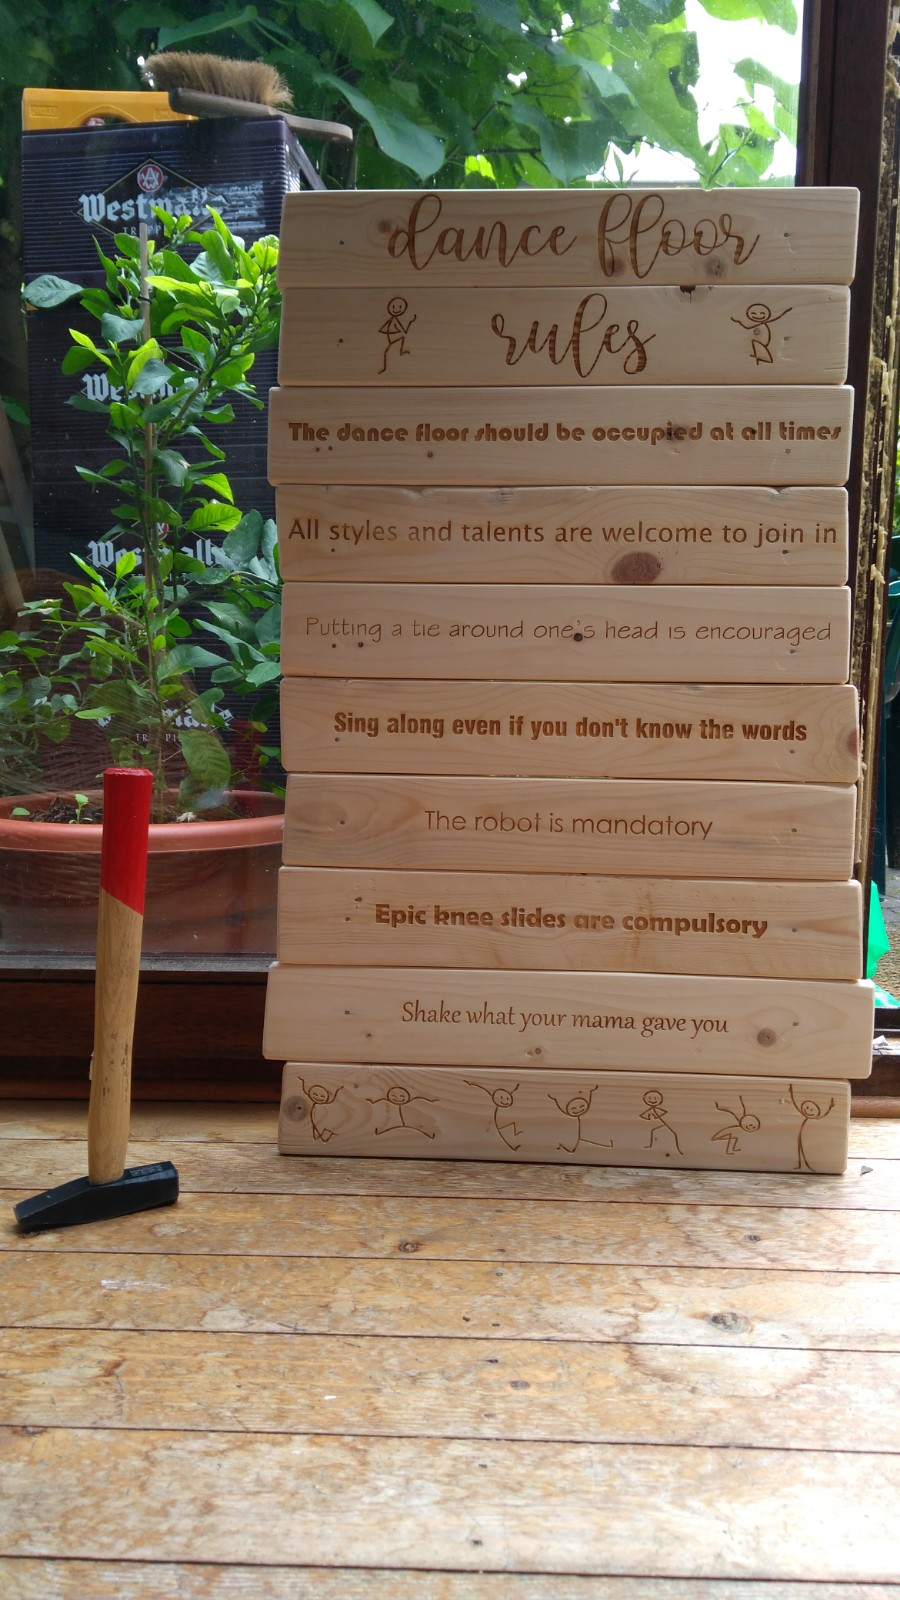 Westmalle
TRIPEL
Westmalle
Westmalle
Westmalle
TRIPEL
dance floor
rules
The dance floor should be occupied at all times
All styles and talents are welcome to join in
Putting a tie around one's head is encouraged
Sing along even if you don't know the words
The robot is mandatory
Epic knee slides are compulsory
Shake what your mama gave you